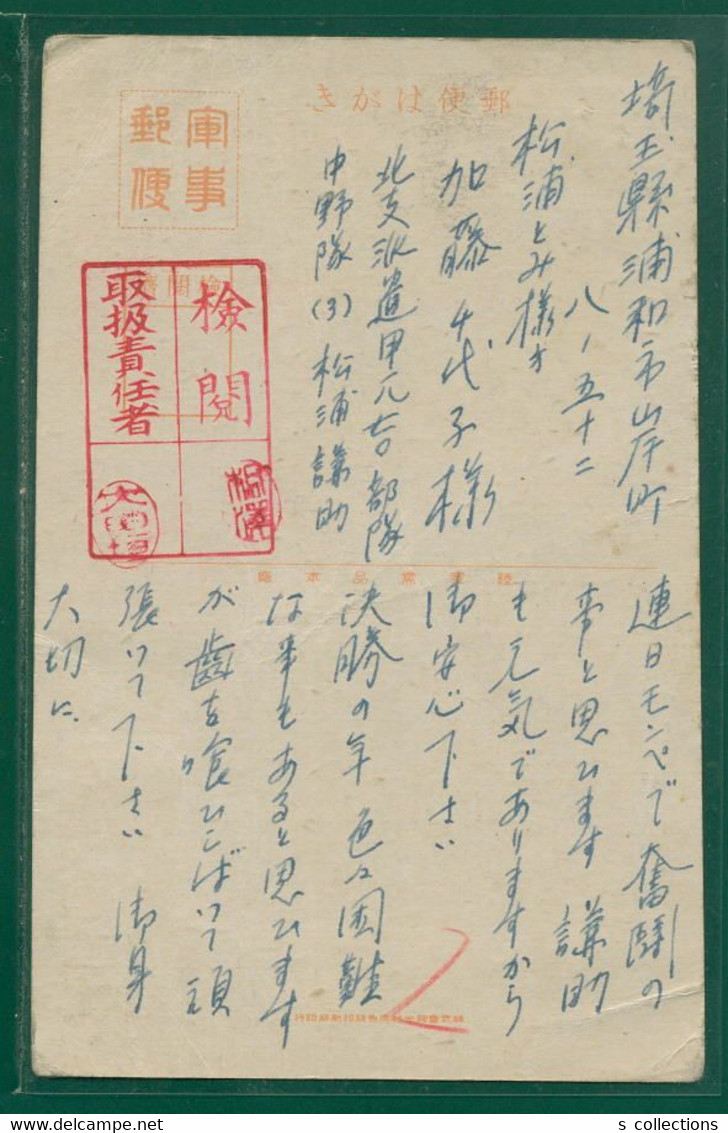 郵便はがき
軍事郵便
埼玉縣浦和市山岸町
八ノ五十二
松浦とみ様方
加藤千代子様
北支派遣甲元吉部隊
中野隊(3) 松浦謙助
検閲
取扱責任者
連日モンペで奮闘の
事と思ひます 謙助
も元気でありますから
御安心下さい
決勝の年 色々困難
な事もあると思ひます
が歯を喰ひしばいて頑
張いて下さい 御身
大切に.
s collections